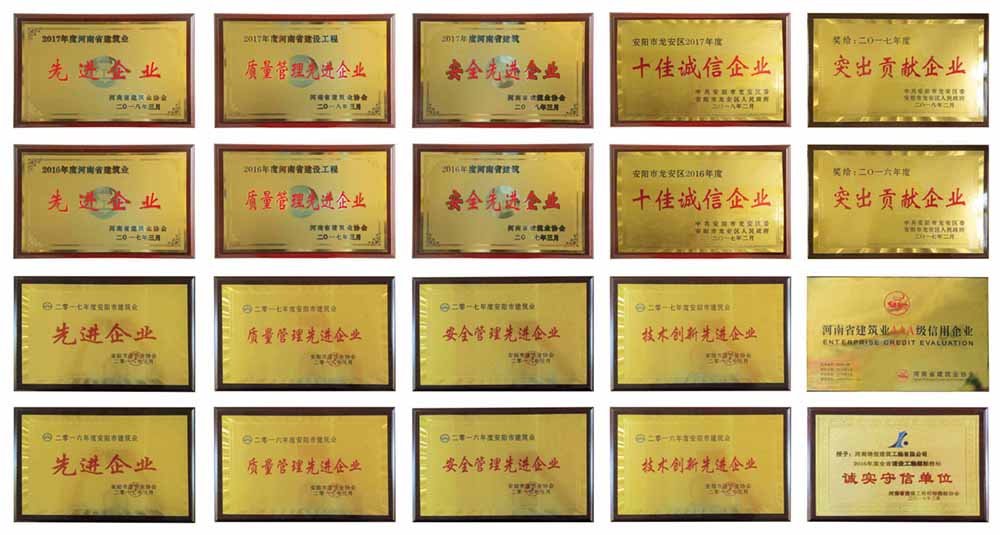 2017年度河南省建筑业
先进企业
河南省建筑业协会
二〇一八年三月
2017年度河南省建设工程
质量管理先进企业
河南省建筑业协会
二〇一八年三月
2017年度河南省建筑
安全先进企业
河南省建筑业协会
二〇一八年三月
安阳市龙安区2017年度
十佳诚信企业
中共安阳市龙安区委
安阳市龙安区人民政府
二〇一八年二月
奖给:二〇一七年度
突出贡献企业
中共安阳市龙安区委
安阳市龙安区人民政府
二〇一八年二月
2016年度河南省建筑业
先进企业
河南省建筑业协会
二〇一七年三月
2016年度河南省建设工程
质量管理先进企业
河南省建筑业协会
二〇一七年三月
2016年度河南省建筑
安全先进企业
河南省建筑业协会
二〇一七年三月
安阳市龙安区2016年度
十佳诚信企业
中共安阳市龙安区委
安阳市龙安区人民政府
二〇一七年二月
奖给:二〇一六年度
突出贡献企业
中共安阳市龙安区委
安阳市龙安区人民政府
二〇一七年二月
二零一七年度安阳市建筑业
先进企业
安阳市建筑业协会
二零一七年度安阳市建筑业
质量管理先进企业
安阳市建筑业协会
二零一七年度安阳市建筑业
安全管理先进企业
安阳市建筑业协会
二零一七年度安阳市建筑业
技术创新先进企业
安阳市建筑业协会
河南省建筑业AAA级信用企业
ENTERPRISE CREDIT EVALUATION
河南省建筑业协会
二零一六年度安阳市建筑业
先进企业
安阳市建筑业协会
二零一六年度安阳市建筑业
质量管理先进企业
安阳市建筑业协会
二零一六年度安阳市建筑业
安全管理先进企业
安阳市建筑业协会
二零一六年度安阳市建筑业
技术创新先进企业
安阳市建筑业协会
授予:河南
建筑工程有限公司
2016年度全省建设工程招标投标
诚实守信单位
河南省建设工程招标投标协会
二〇一七年三月